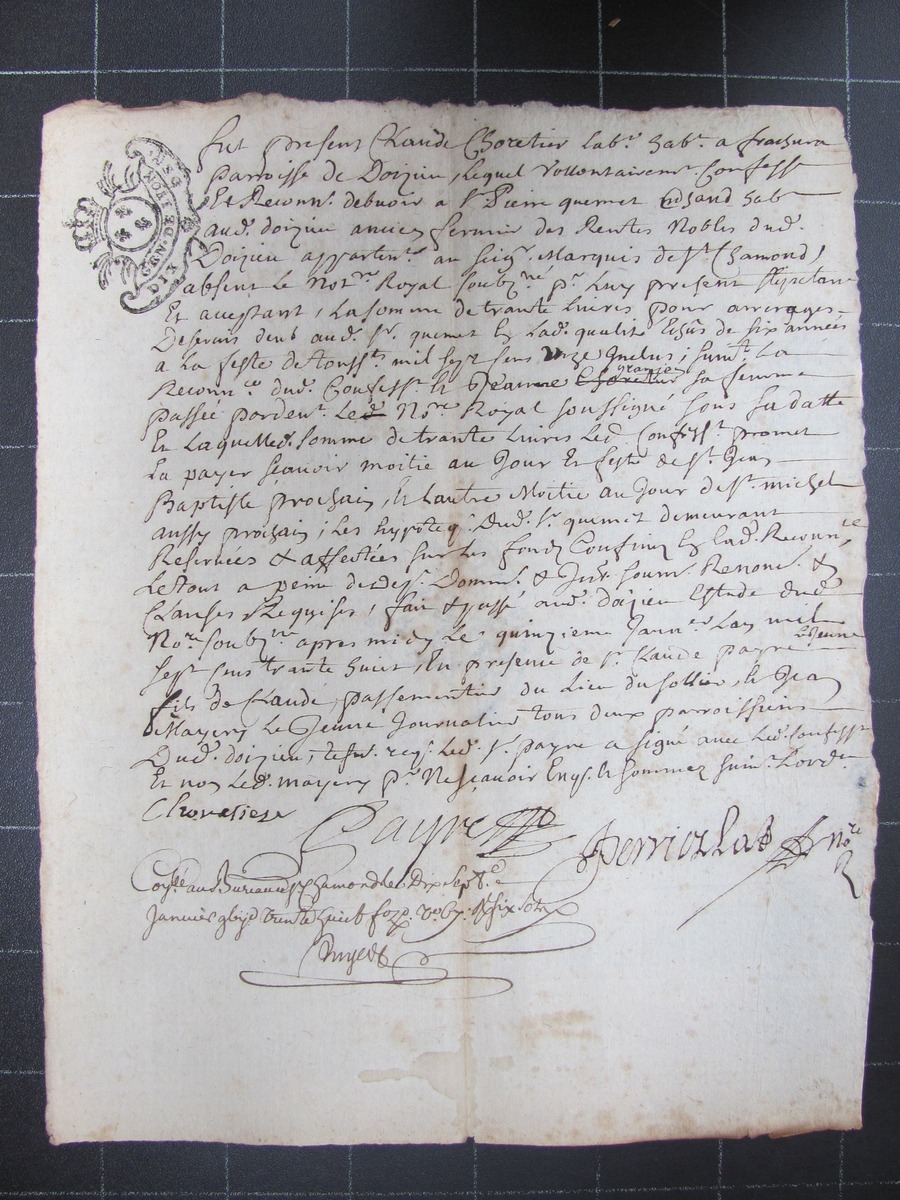 GEN. DE
DIX
fut present Claude Choretier lab.r hab.t a
parroisse de Doizieu, lequel vollontairem.t Confesse
Et Reconn. debvoir a s.r Pierre quemet hab.t
aud. doizieu ancien fermier des Rentes Nobles dud.
Doizieu apparten.t au seig.r Marquis de S.t Chamond,
absent le Not.re Royal soubz.né p.r luy present stipulant
Et aceptant, la somme de trante livres pour arrerages
De servis deub aud. s.r quemet En lad. qualité de six années
a la feste de Touss.ts mil sept sens onze Inclus, suiv.t La
Reconn.ce dud. Confess.t et Jeanne granjon sa femme
passée pardev.t Led. No.re Royal soussigné sous sa datte
Et laquelle d. somme de trante livres led. Confess.t promet
La payer sçavoir moitié au Jour Et feste de S.t Jean
Baptiste prochain, Et lautre Moitié au Jour de S.t michel
aussy prochain, Les hypoteq. Dud. s.r quemet demeurant
Reservées & affectées sur les fondz Confinez En lad. Reconn.ce
Le tout a peine de Domm. & Renonc. &
Clauses Requises, fait & passé aud. doizieu Estude dud.
No.re soubz.né apres midy Le quinzieme Janv.er Lan mil
sept sens trante huict, En presence de s.r Claude payre le Jeune
fils de Claude, passementier du Lieu du sollier, et Jean
Mayery Le Jeune Journalier tous deux parroissiens
Dud. doizieu, tesm. req. led. s.r payre a signé avec led. Confess.t
Et non led. mayery p.r Ne sçavoir Enq. et sommez suiv.t Lord.
Choretier
Payre
Perrichat No.re
au Bureau de S.t Chamond le Dix Sept.e
Janvier trente huict six sols